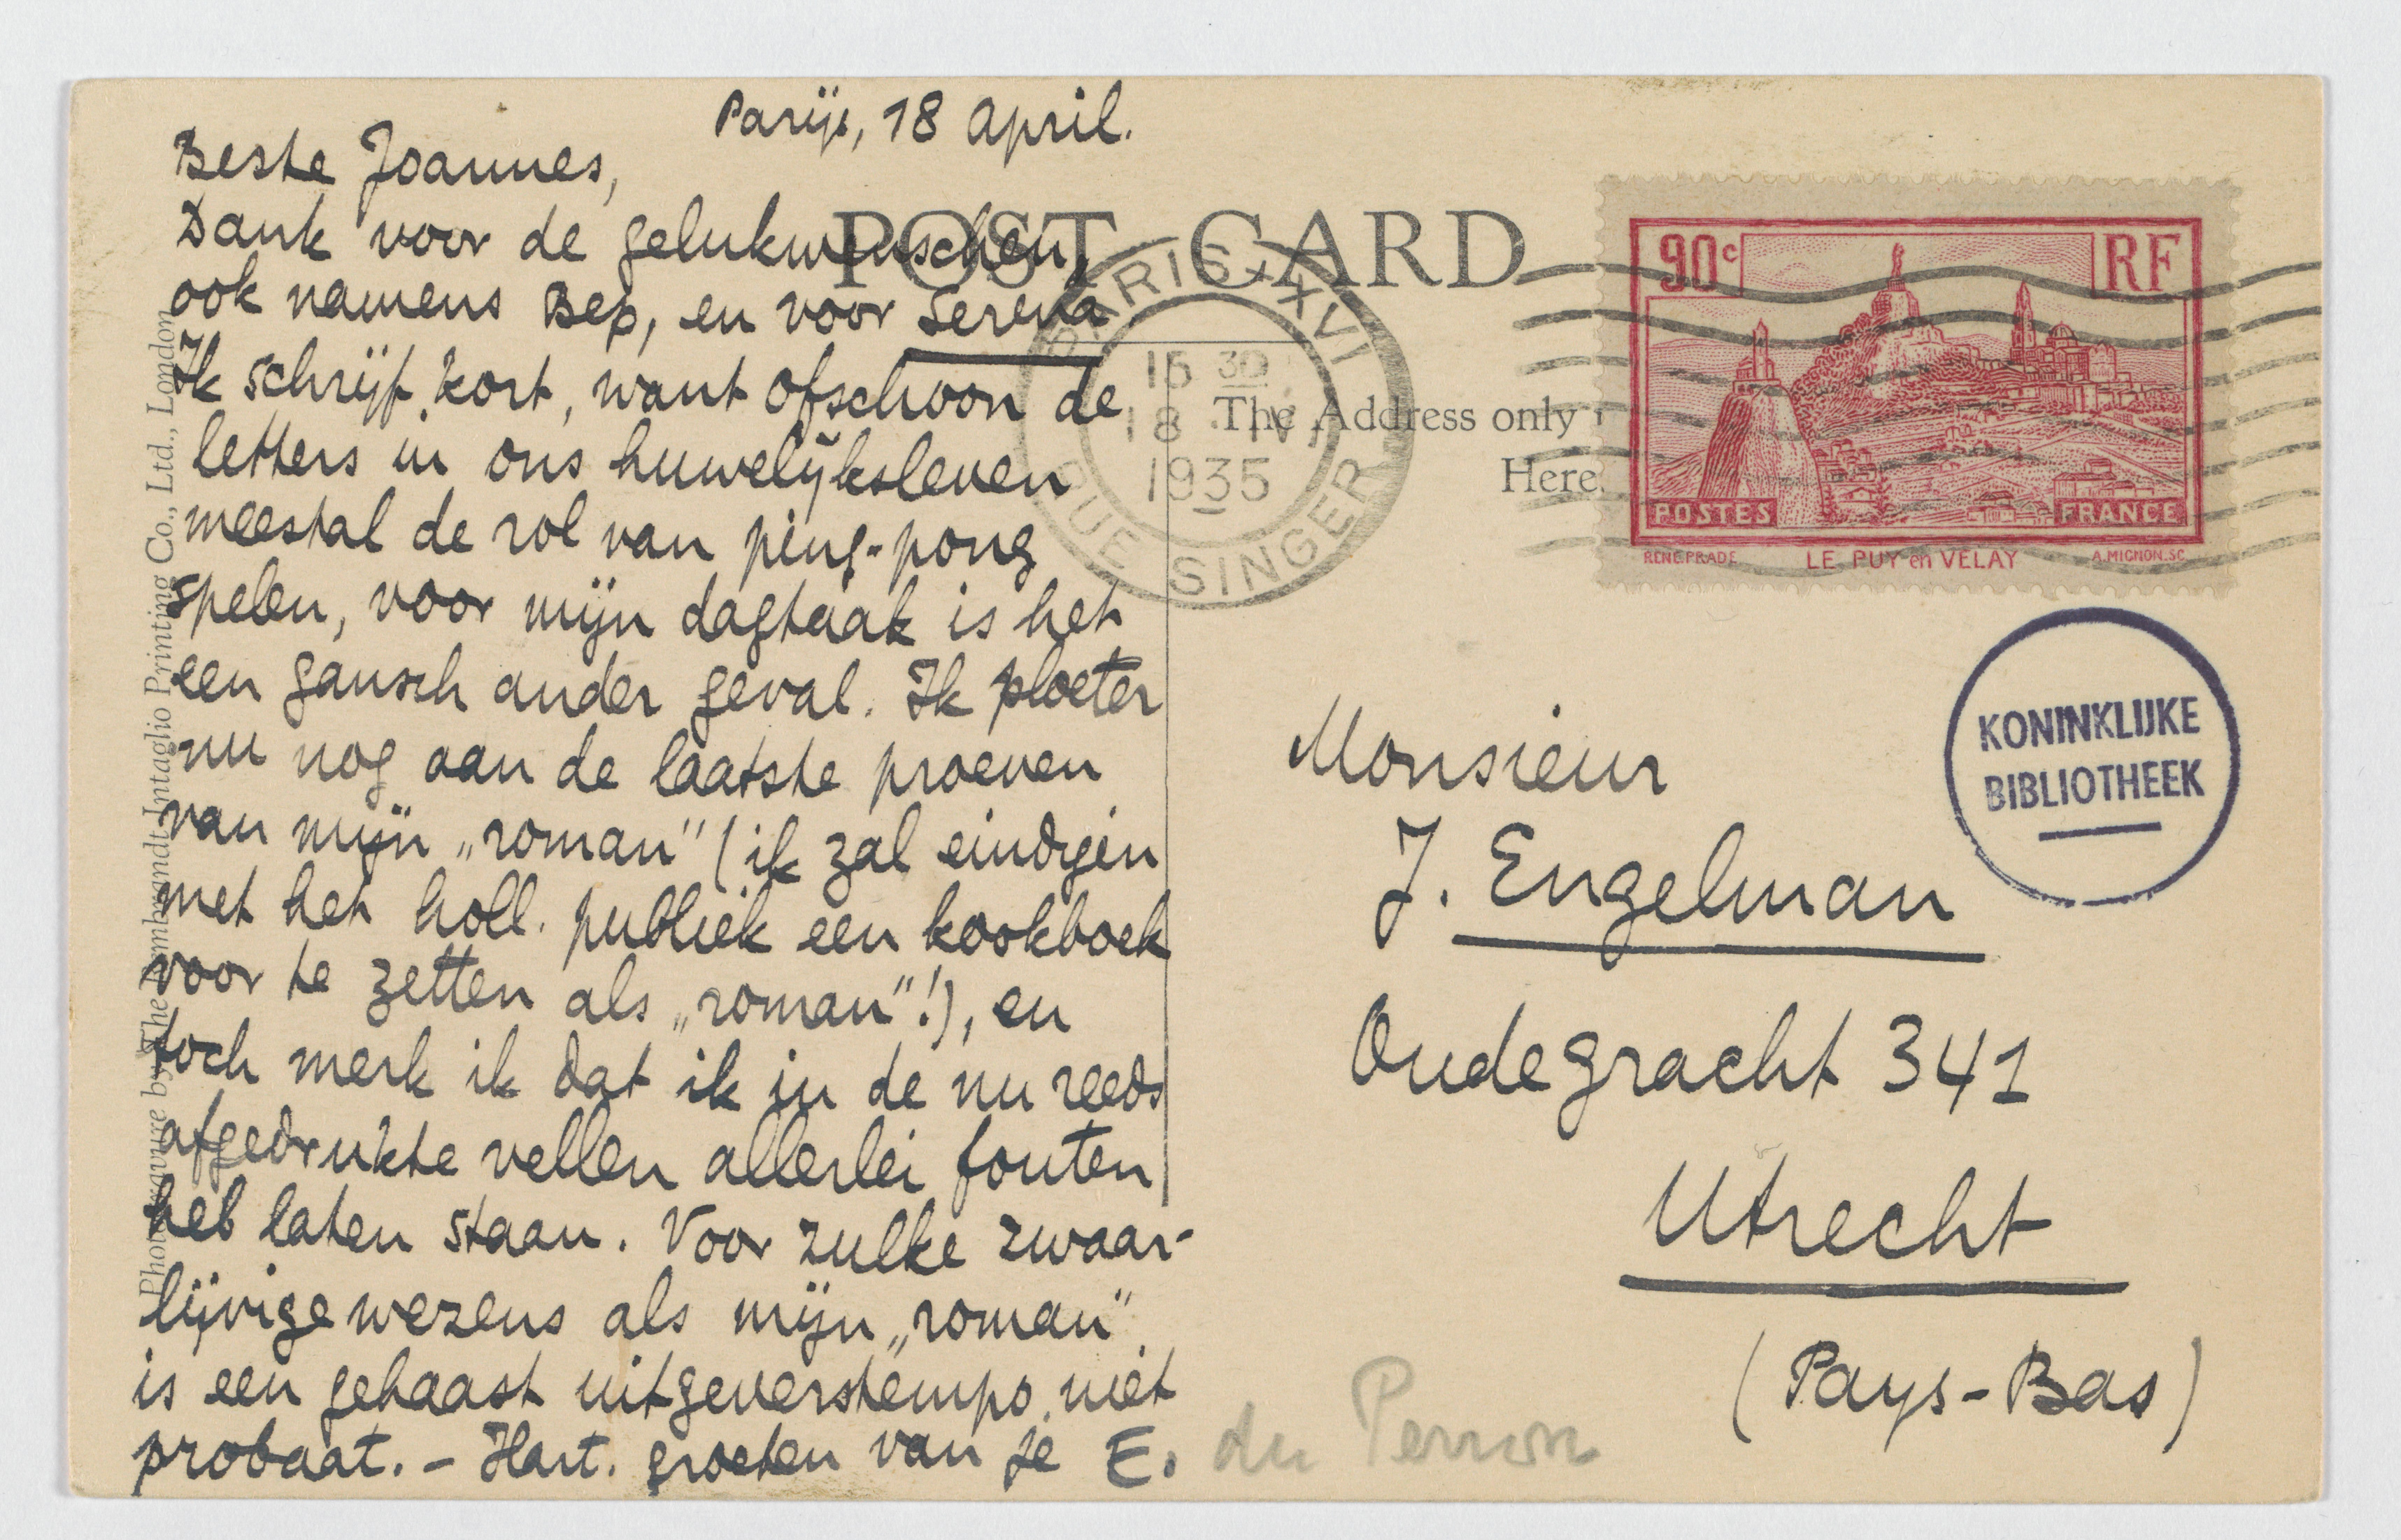 Parijs, 18 April.
Beste Joannes,
Dank voor de gelukwenschen,
ook namens Bep, en voor Serena
Ik schrijf kort, want ofschoon de
letters in ons huwelijksleven
meestal de rol van ping-pong
spelen, voor mijn dagtaak is het
een gansch ander geval. Ik ploeter
nu nog aan de laatste proeven
van mijn „roman” (ik zal eindigen
met het holl. publiek een kookboek
voor te zetten als „roman”!), en
toch merk ik dat ik in de nu reeds
afgedrukte vellen allerlei fouten
heb laten staan. Voor zulke zwaar-
lijvige wezens als mijn „roman”
is een gehaast uitgeverstempo niet
probaat. – Hart. groeten van je E.
du Perron
POST CARD
The Address only
Here.
PARIS XVI
15 30
18 IV
1935
RUE SINGER
90c
RF
POSTES
FRANCE
RENE PRADE
LE PUY en VELAY
A.MIGNON.SC.
KONINKLIJKE
BIBLIOTHEEK
Monsieur
J. Engelman
Oudegracht 341
Utrecht
(Pays-Bas)
Photogravure by The Rembrandt Intaglio Printing Co., Ltd., London